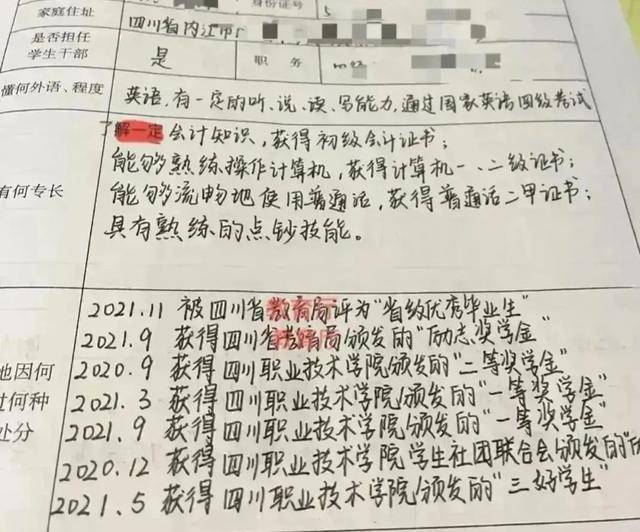 家庭住址
身份证号
5
四川省内江市
是否担任
学生干部
是
职务
懂何外语、程度
英语,有一定的听、说、读、写能力,通过国家英语四级考试
了解一定会计知识,获得初级会计证书;
能够熟练操作计算机,获得计算机一、二级证书;
有何专长
能够流畅地使用普通话,获得普通话二甲证书;
具有熟练的点钞技能。
2021.11 被四川省教育局评为"省级优秀毕业生"
教育厅
2021.9 获得四川省教育局颁发的"励志奖学金"
教育厅
2020.9 获得四川职业技术学院颁发的"二等奖学金"
地因何
2021.3 获得四川职业技术学院颁发的"一等奖学金"
过何种
2021.9 获得四川职业技术学院颁发的"一等奖学金"
处分
2020.12 获得四川职业技术学院学生社团联合会颁发的"
2021.5 获得四川职业技术学院颁发的"三好学生"